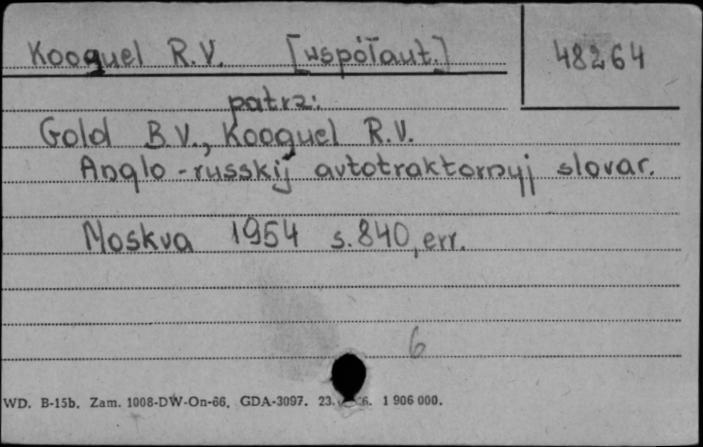 Kooguel R.V. [współaut.] 48264
patrz:
Gold B.V., Kooguel R.V.
Anglo-russkij avtotraktornyj slovar.
Moskva 1954 s.840, err.
6
WD. B-15b. Zam. 1008-DW-On-66. GDA-3097. 23. 6. 1 906 000.